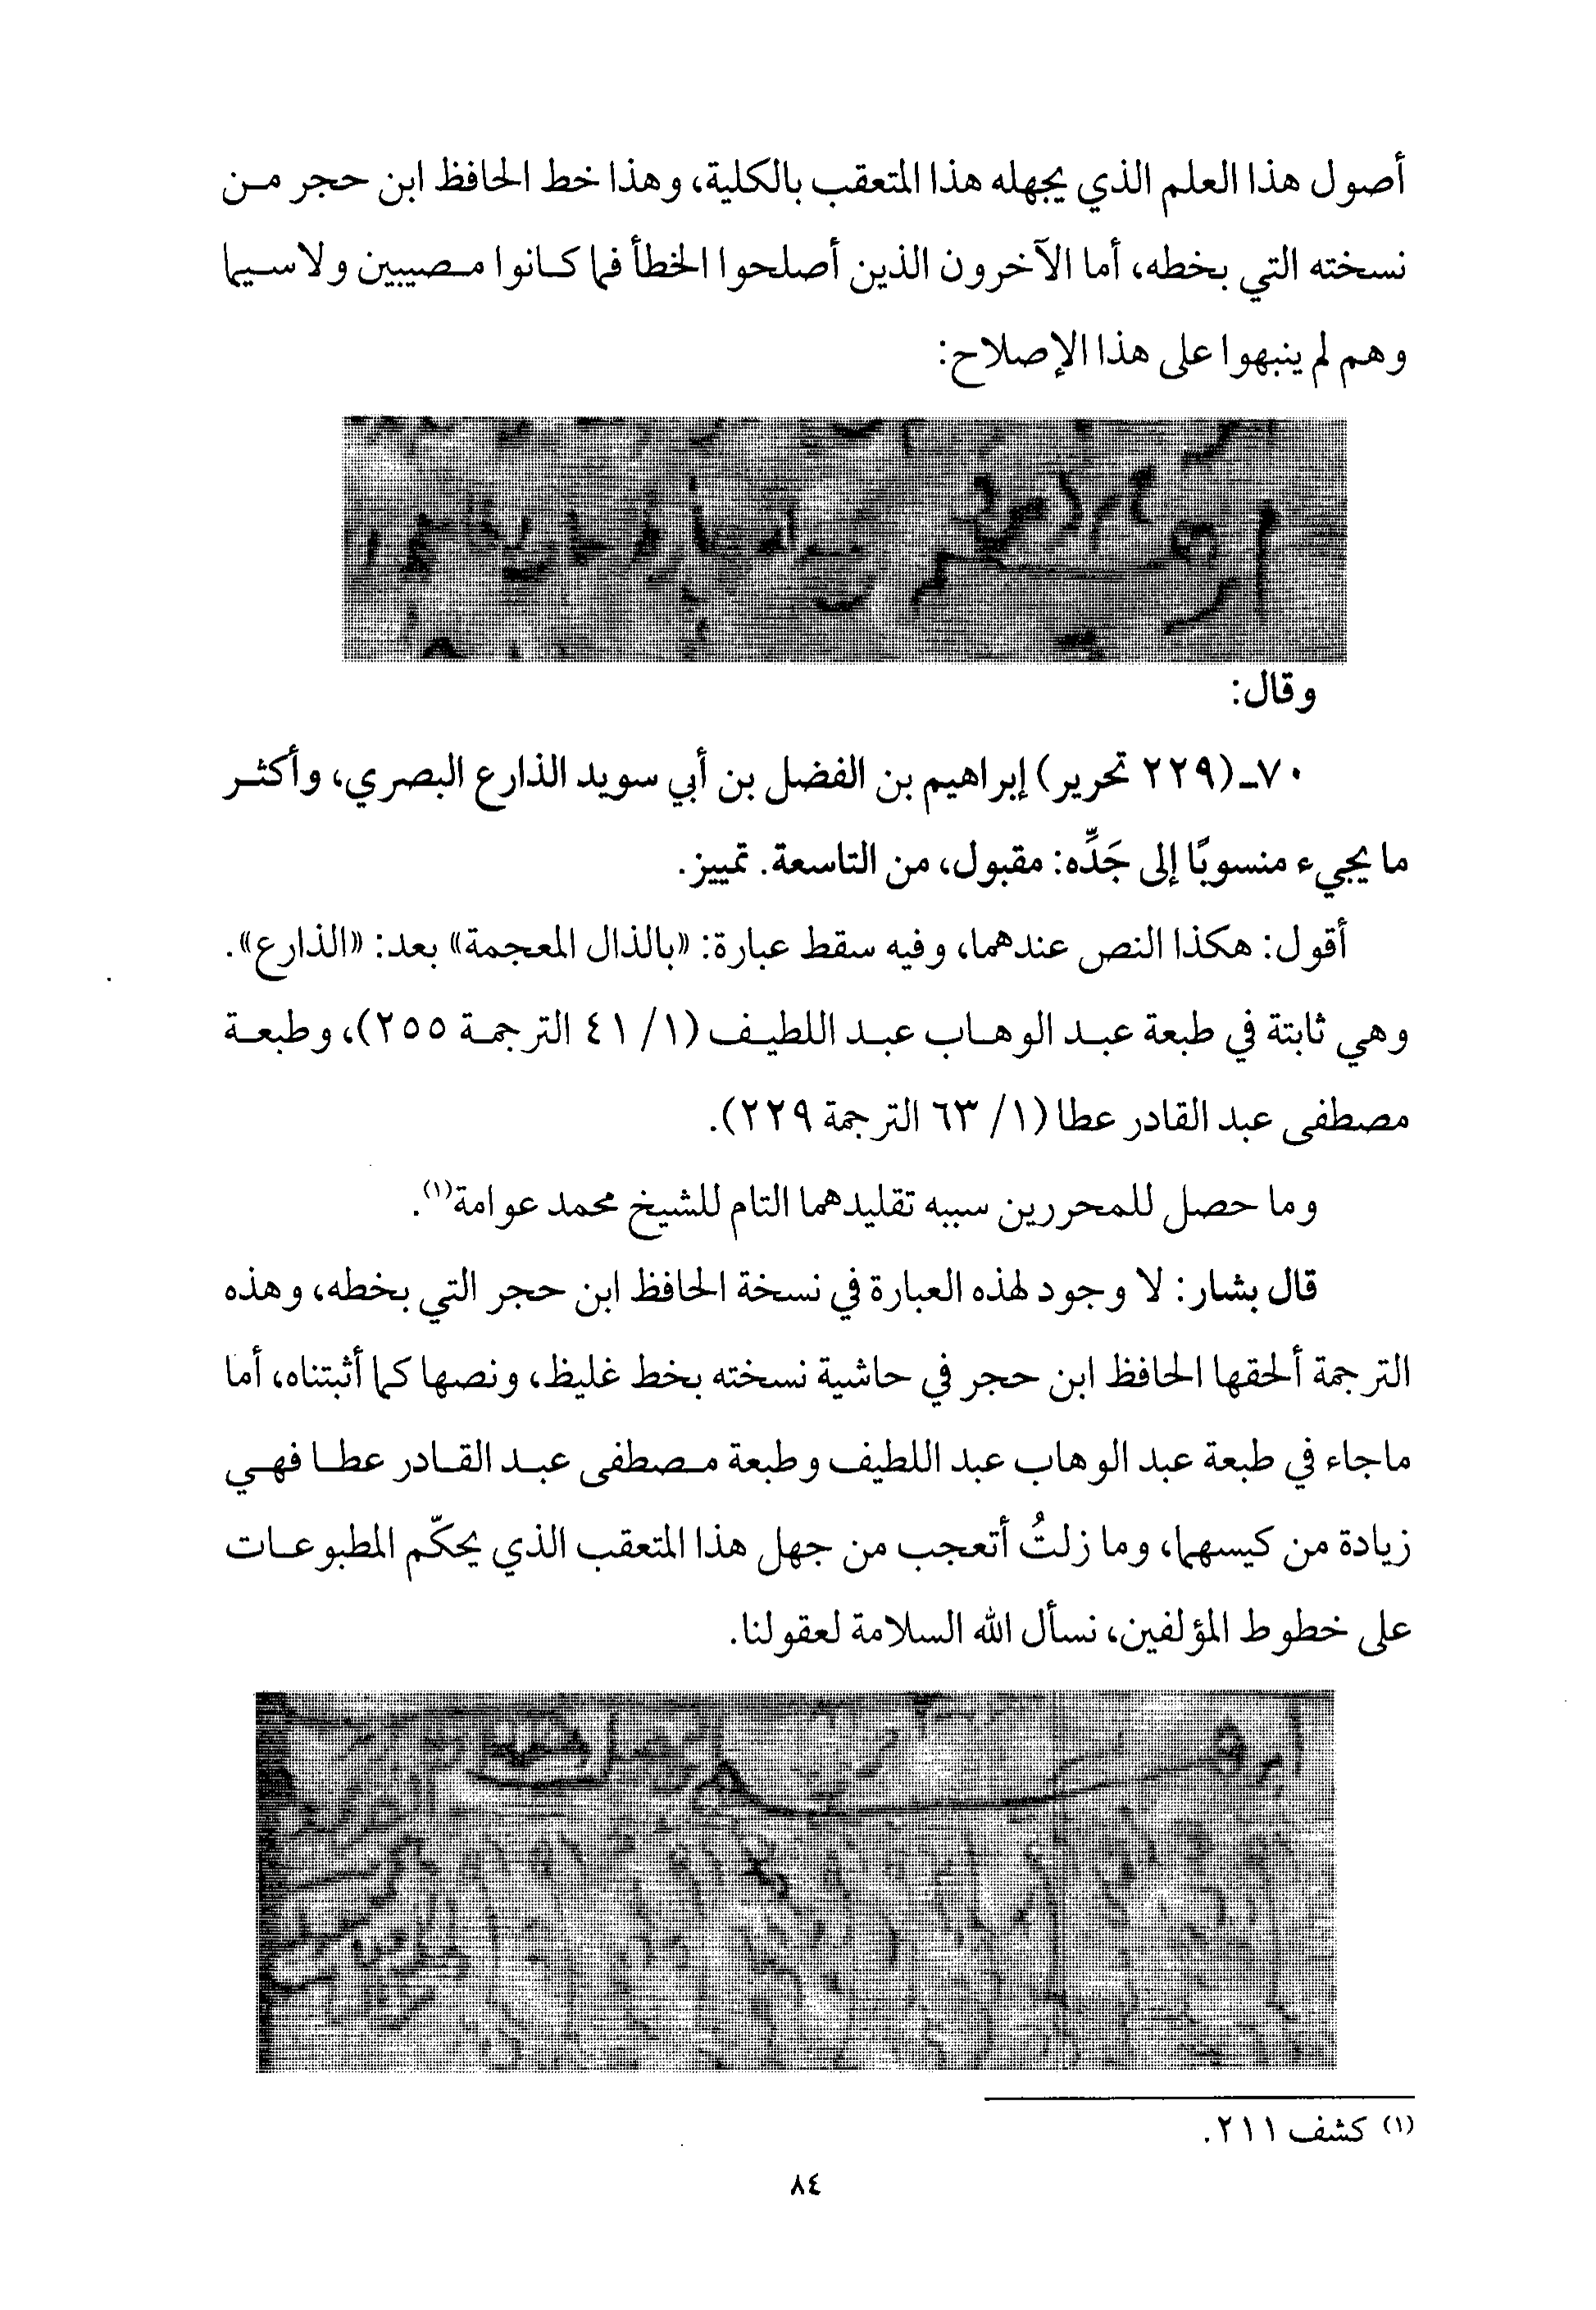 أصول هذا العلم الذي يجهله هذا المتعقب بالكلية، وهذا خط الحافظ ابن حجر من
نسخته التي بخطه، أما الآخرون الذين أصلحوا الخطأ فما كانوا مصيبين ولاسيما
وهم لم ينبهوا على هذا الإصلاح:
وقال:
٧٠ـ (٢٢٩ تحرير) إبراهيم بن الفضل بن أبي سويد الذارع البصري، وأكثر
ما يجيء منسوبًا إلى جَدِّه: مقبول، من التاسعة. تمييز.
أقول: هكذا النص عندهما، وفيه سقط عبارة: «بالذال المعجمة» بعد: «الذارع».
وهي ثابتة في طبعة عبد الوهاب عبد اللطيف (١/ ٤١ الترجمة ٢٥٥)، وطبعة
مصطفى عبد القادر عطا (١/ ٦٣ الترجمة ٢٢٩).
وما حصل للمحررين سببه تقليدهما التام للشيخ محمد عوامة(١).
قال بشار: لا وجود لهذه العبارة في نسخة الحافظ ابن حجر التي بخطه، وهذه
الترجمة ألحقها الحافظ ابن حجر في حاشية نسخته بخط غليظ، ونصها كما أثبتناه، أما
ماجاء في طبعة عبد الوهاب عبد اللطيف وطبعة مصطفى عبد القادر عطا فهي
زيادة من كيسهما، وما زلتُ أتعجب من جهل هذا المتعقب الذي يحكّم المطبوعات
على خطوط المؤلفين، نسأل الله السلامة لعقولنا.
(١) كشف ٢١١.
٨٤